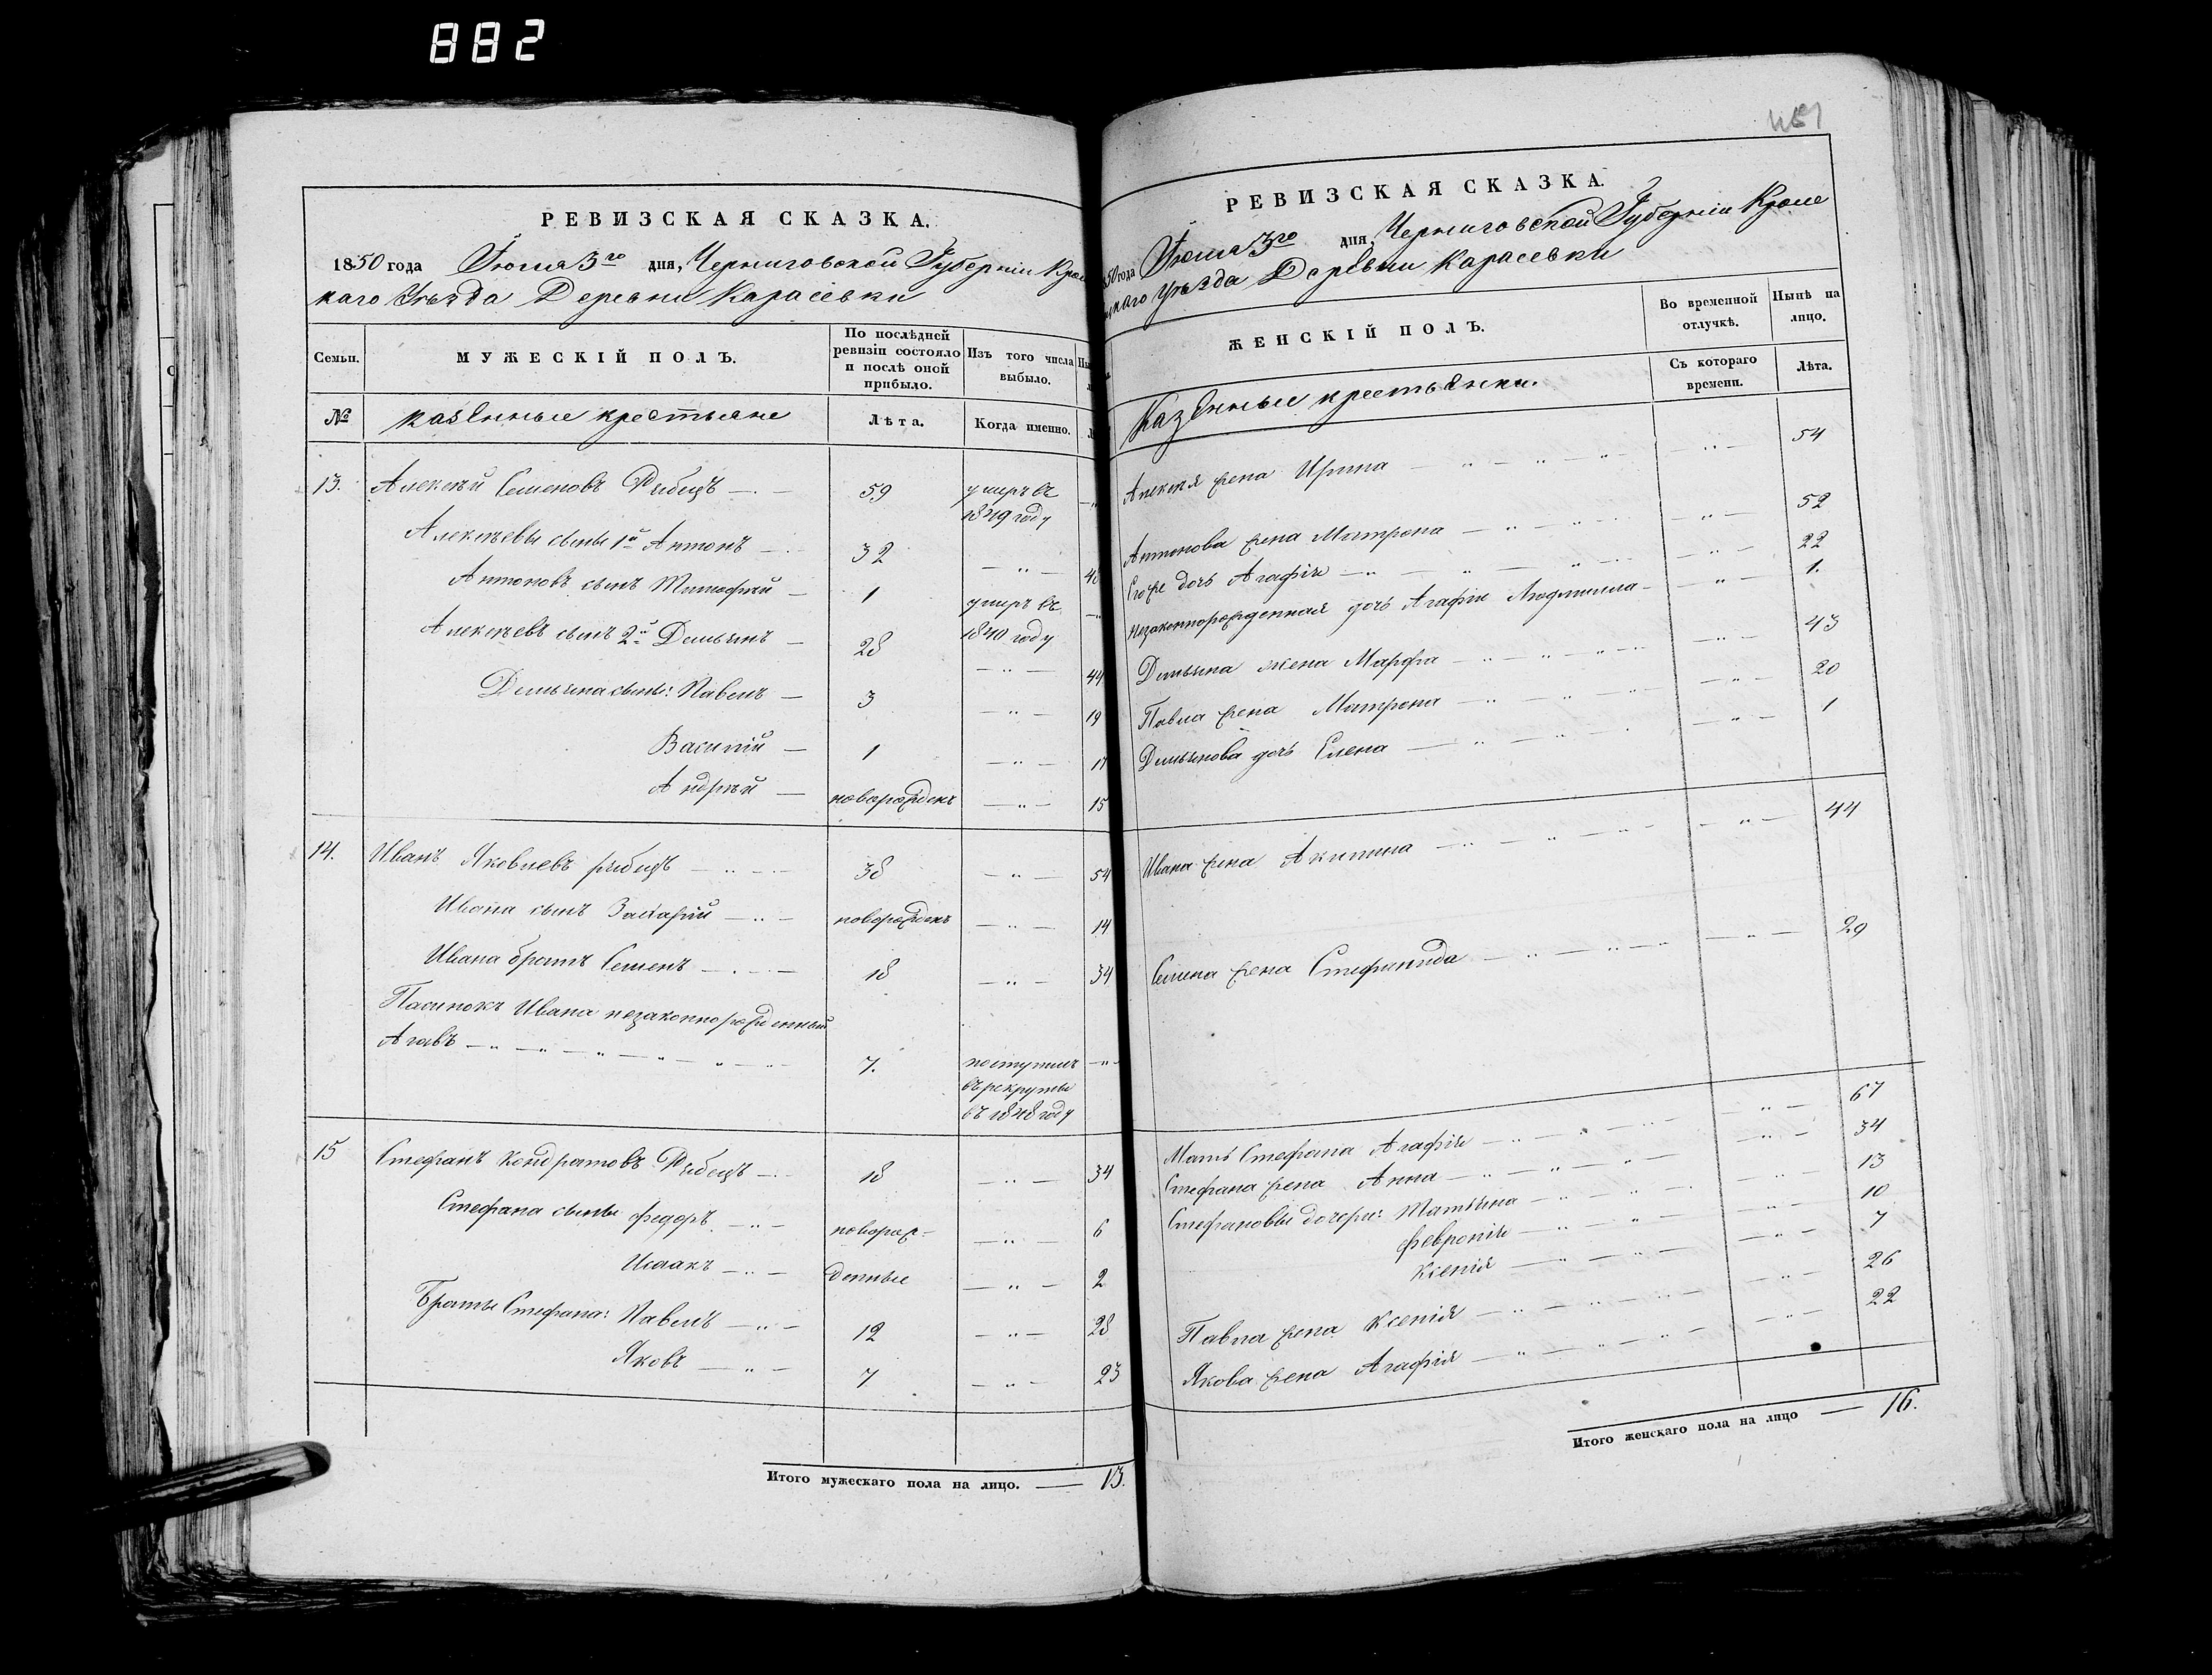 882
РЕВИЗСКАЯ СКАЗКА.
1850 года Іюня 3го дня, Черниговской Губерніи Кроле
каго Уѣзда Деревни Карасевки
Семьи.
МУЖЕСКІЙ ПОЛЪ.
По послѣдней ревизіи состояло и послѣ оной прибыло.
Изъ того числа выбыло.
№
казенные крестьяне
Лѣта.
Когда именно.
13. Алексѣй Семеновъ Рыбецъ — 59 умеръ въ
1849 году
Алексѣевы сыны 1й Антонъ — 32 — „ —
Антоновъ сынъ Тимофѣй — 1 умеръ въ
1840 году
Алексѣевъ сынъ 2й Демьянъ — 28 — „ — 44
Демьяна сыны: Павелъ — 3 — „ — 19
Василій — 1 — „ — 17
Андрѣй — новорожденъ — „ — 15
14. Иванъ Яковлевъ рыбецъ — 38 — „ — 54
Ивана сынъ Захарій — новорожденъ — „ — 14
Ивана братъ Семенъ — 18 — „ — 34
Пасинокъ Ивана незаконнорожденный
7. поступилъ — „
въ рекруты
въ 1848 году
15 Стефанъ Кондратовъ Рыбецъ — 18 — „ — 34
Стефана сыны Федоръ — „ — новорож- — „ — 6
Исаакъ — „ — денные — „ — 2
Братья Стефана: Павелъ — „ — 12 — „ — 28
Яковъ — „ — 7 — „ — 23
Итого мужескаго пола на лицо. — 13.
РЕВИЗСКАЯ СКАЗКА.
850 года Іюня 3го дня, Черниговской Губерніи Кроле
цкаго Уѣзда Деревни Карасевки
ЖЕНСКІЙ ПОЛЪ.
Во временной отлучкѣ.
Нынѣ на лицо.
Съ котораго времени.
Лѣта.
Казенные крестьянки.
Алексѣя жена Ирина — „ — „ — „ — 54
Антонова жена Матрона — „ — „ — 52
Егоже дочь Агафія — „ — „ — 22
Незаконнорожденная дочь Агафіи Людмилла — „ — 1.
Демьяна жена Марфа — „ — „ — 43
Павла жена Матрона — „ — „ — 20
Демьянова дочь Елена — „ — „ — 1
Ивана жена Акилина — „ — „ — 44
Семена жена Стефанида — „ — „ — 29
Мать Стефана Агафія — „ — „ — 67
Стефана жена Анна — „ — „ — 34
Стефановы дочери: Татьяна — „ — „ — 13
Февронія — „ — „ — 10
Ксенія — „ — „ — 7
Павла жена Ксенія — „ — „ — 26
Якова жена Агафія — „ — „ — 22
Итого женскаго пола на лицо — 16.